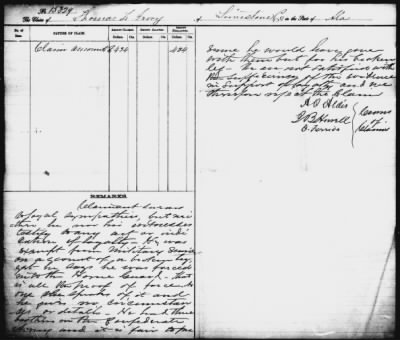 No. 15829
The Claim of Thomas L. Ivory of Limestone Co. in the State of Ala
No. of Item. NATURE OF CLAIM. AMOUNT CLAIMED. AMOUNT ALLOWED. AMOUNT DISALLOWED.
Dolls. Cts. Dolls. Cts. Dolls. Cts.
Claim amounts $ 424 424
REMARKS.
Claimant swears
to loyal sympathies, but nei
ther he nor his witnesses
testify to any act or indi
cation of loyalty. He was
exempt from Military Service
on account of a broken leg,
yet he says he was forced
into the Home Guard. that
is all the proof of force. no
one else speaks of it and
he gives no circumstan
ces or details. He had three
brothers in the Confederate
Army and it is fair to pre
sume he would have gone
with them but for his broken
leg. We are not satisfied with
the sufficiency of the evidence
in support of loyalty and we
therefore reject the Claim
A. O. Aldis
J. B. Howell
O. Ferriss
Comrs
of
Claims